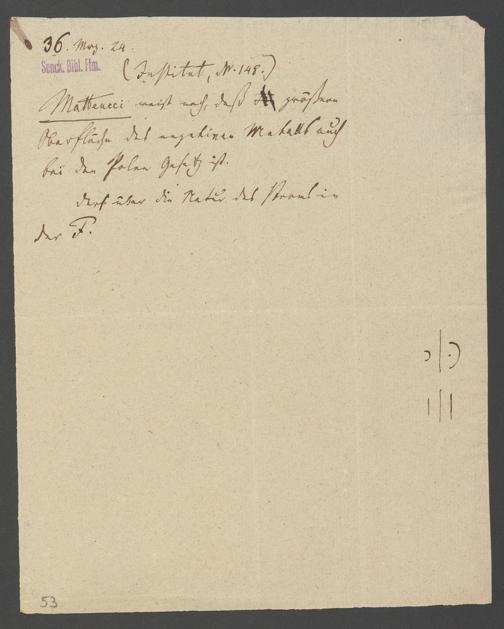 36. Mrz. 24.
Senck. Bibl. Ffm.
(Institut, N. 148.)
Matteucci weist nach, daß größern
Oberfläche des negativen Metalls auch
bei den Polen Gesetz ist.
ders. über die Natur des Stroms in
der F.
53